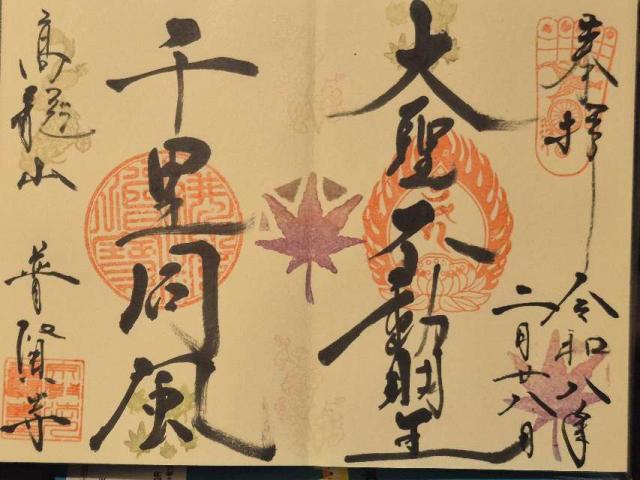 奉拝
令和八年
二月廿八日
大聖不動明王
千里同風
普賢